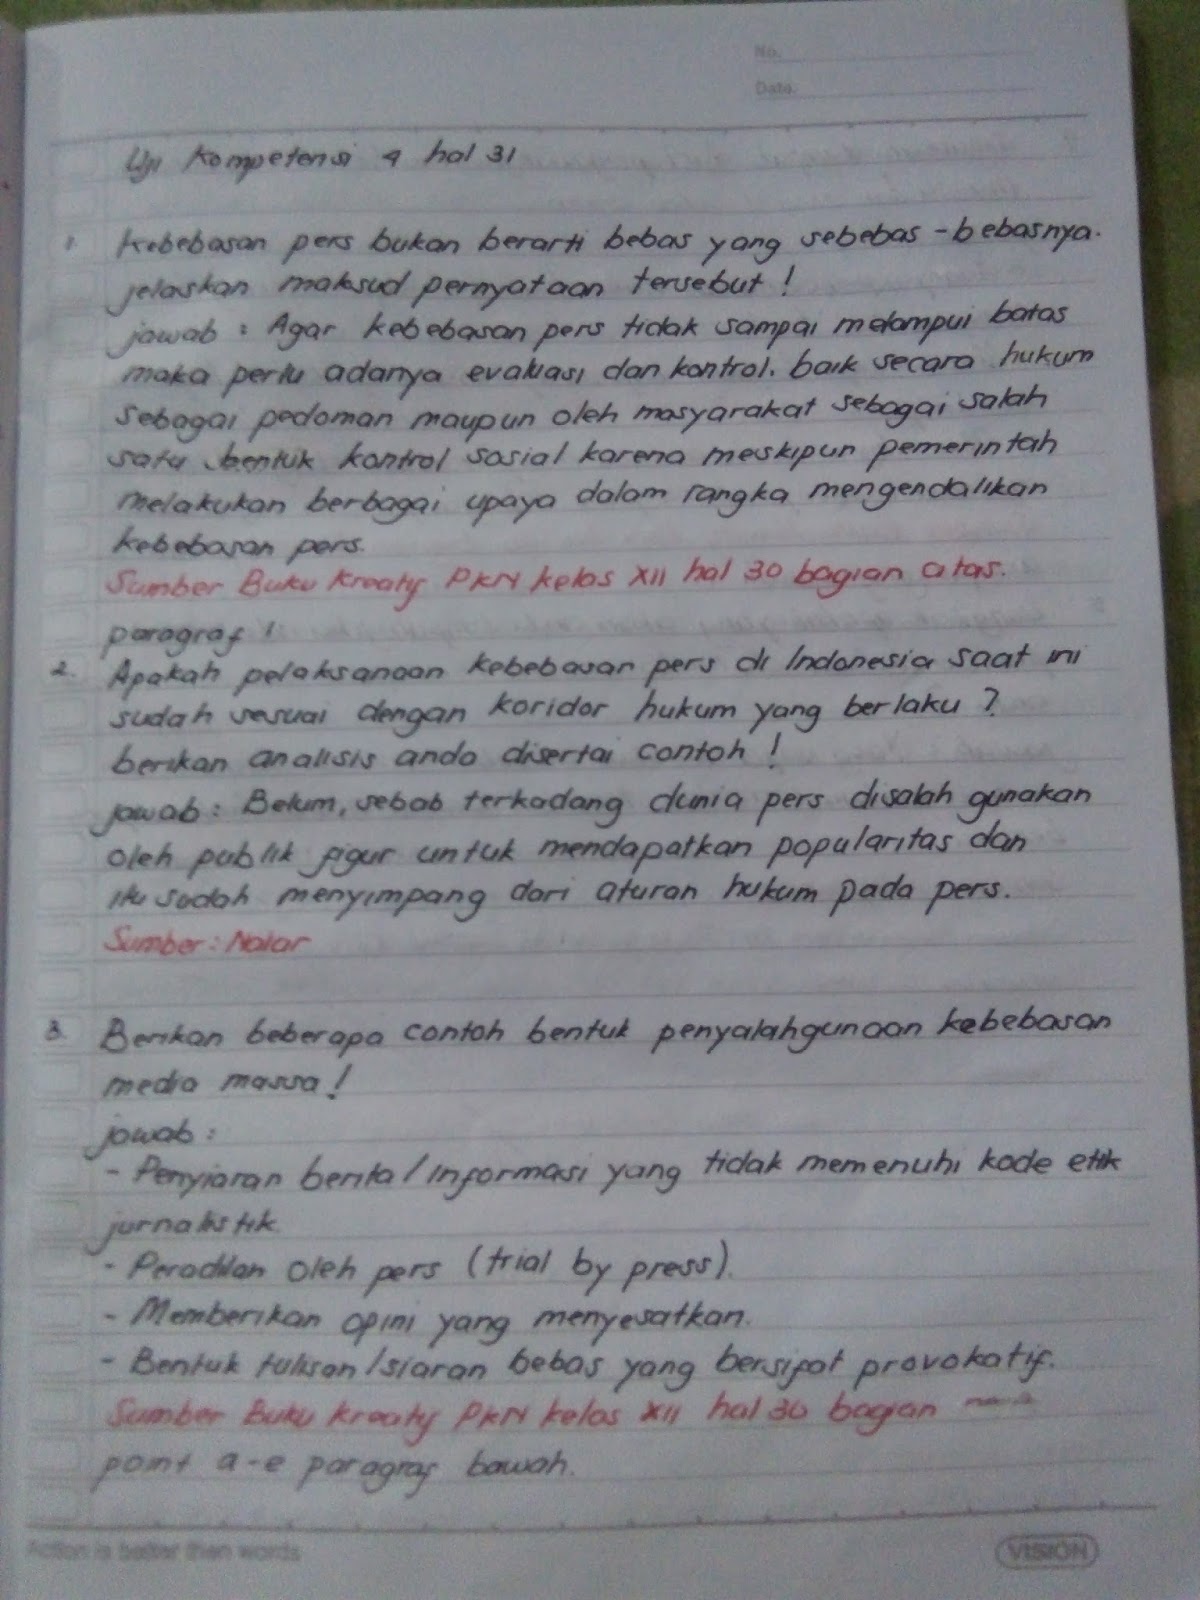 No.
Date.
Uji Kompetensi 4 hal 31
1. Kebebasan pers bukan berarti bebas yang sebebas-bebasnya.
jelaskan maksud pernyataan tersebut!
jawab : Agar kebebasan pers tidak sampai melampui batas
maka perlu adanya evaluasi dan kontrol. baik secara hukum
sebagai pedoman maupun oleh masyarakat sebagai salah
satu bentuk kontrol sosial karena meskipun pemerintah
melakukan berbagai upaya dalam rangka mengendalikan
kebebasan pers.
Sumber Buku Kreatif PKN kelas XII hal 30 bagian atas.
paragraf 1
2. Apakah pelaksanaan kebebasan pers di Indonesia saat ini
sudah sesuai dengan koridor hukum yang berlaku ?
berikan analisis anda disertai contoh !
jawab : Belum, sebab terkadang dunia pers disalah gunakan
oleh publik figur untuk mendapatkan popularitas dan
itu sudah menyimpang dari aturan hukum pada pers.
Sumber : Nalar
3. Berikan beberapa contoh bentuk penyalahgunaan kebebasan
media massa !
jawab :
- Penyiaran berita/informasi yang tidak memenuhi kode etik
jurnalistik.
- Peradilan oleh pers (trial by press).
- Memberikan opini yang menyesatkan.
- Bentuk tulisan/siaran bebas yang bersifat provokatif.
Sumber Buku Kreatif PKN kelas XII hal 30 bagian
point a-e paragraf bawah.
Action is better then words
VISION